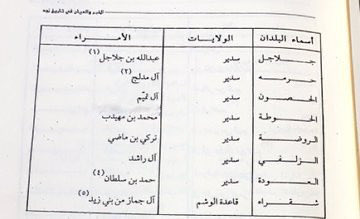 أسماء البلدان الولايات الأمراء
جلاجل سدير عبدالله بن جلاجل (١)
حرمه سدير آل مدلج (٢)
الحصون سدير آل تميم
الحوطة سدير محمد بن مهيدب
الروضة سدير تركي بن ماضي
الزلفي سدير آل راشد
العودة سدير حمد بن سلطان (٤)
شقراء قاعدة الوشم آل جماز من بني زيد (٥)